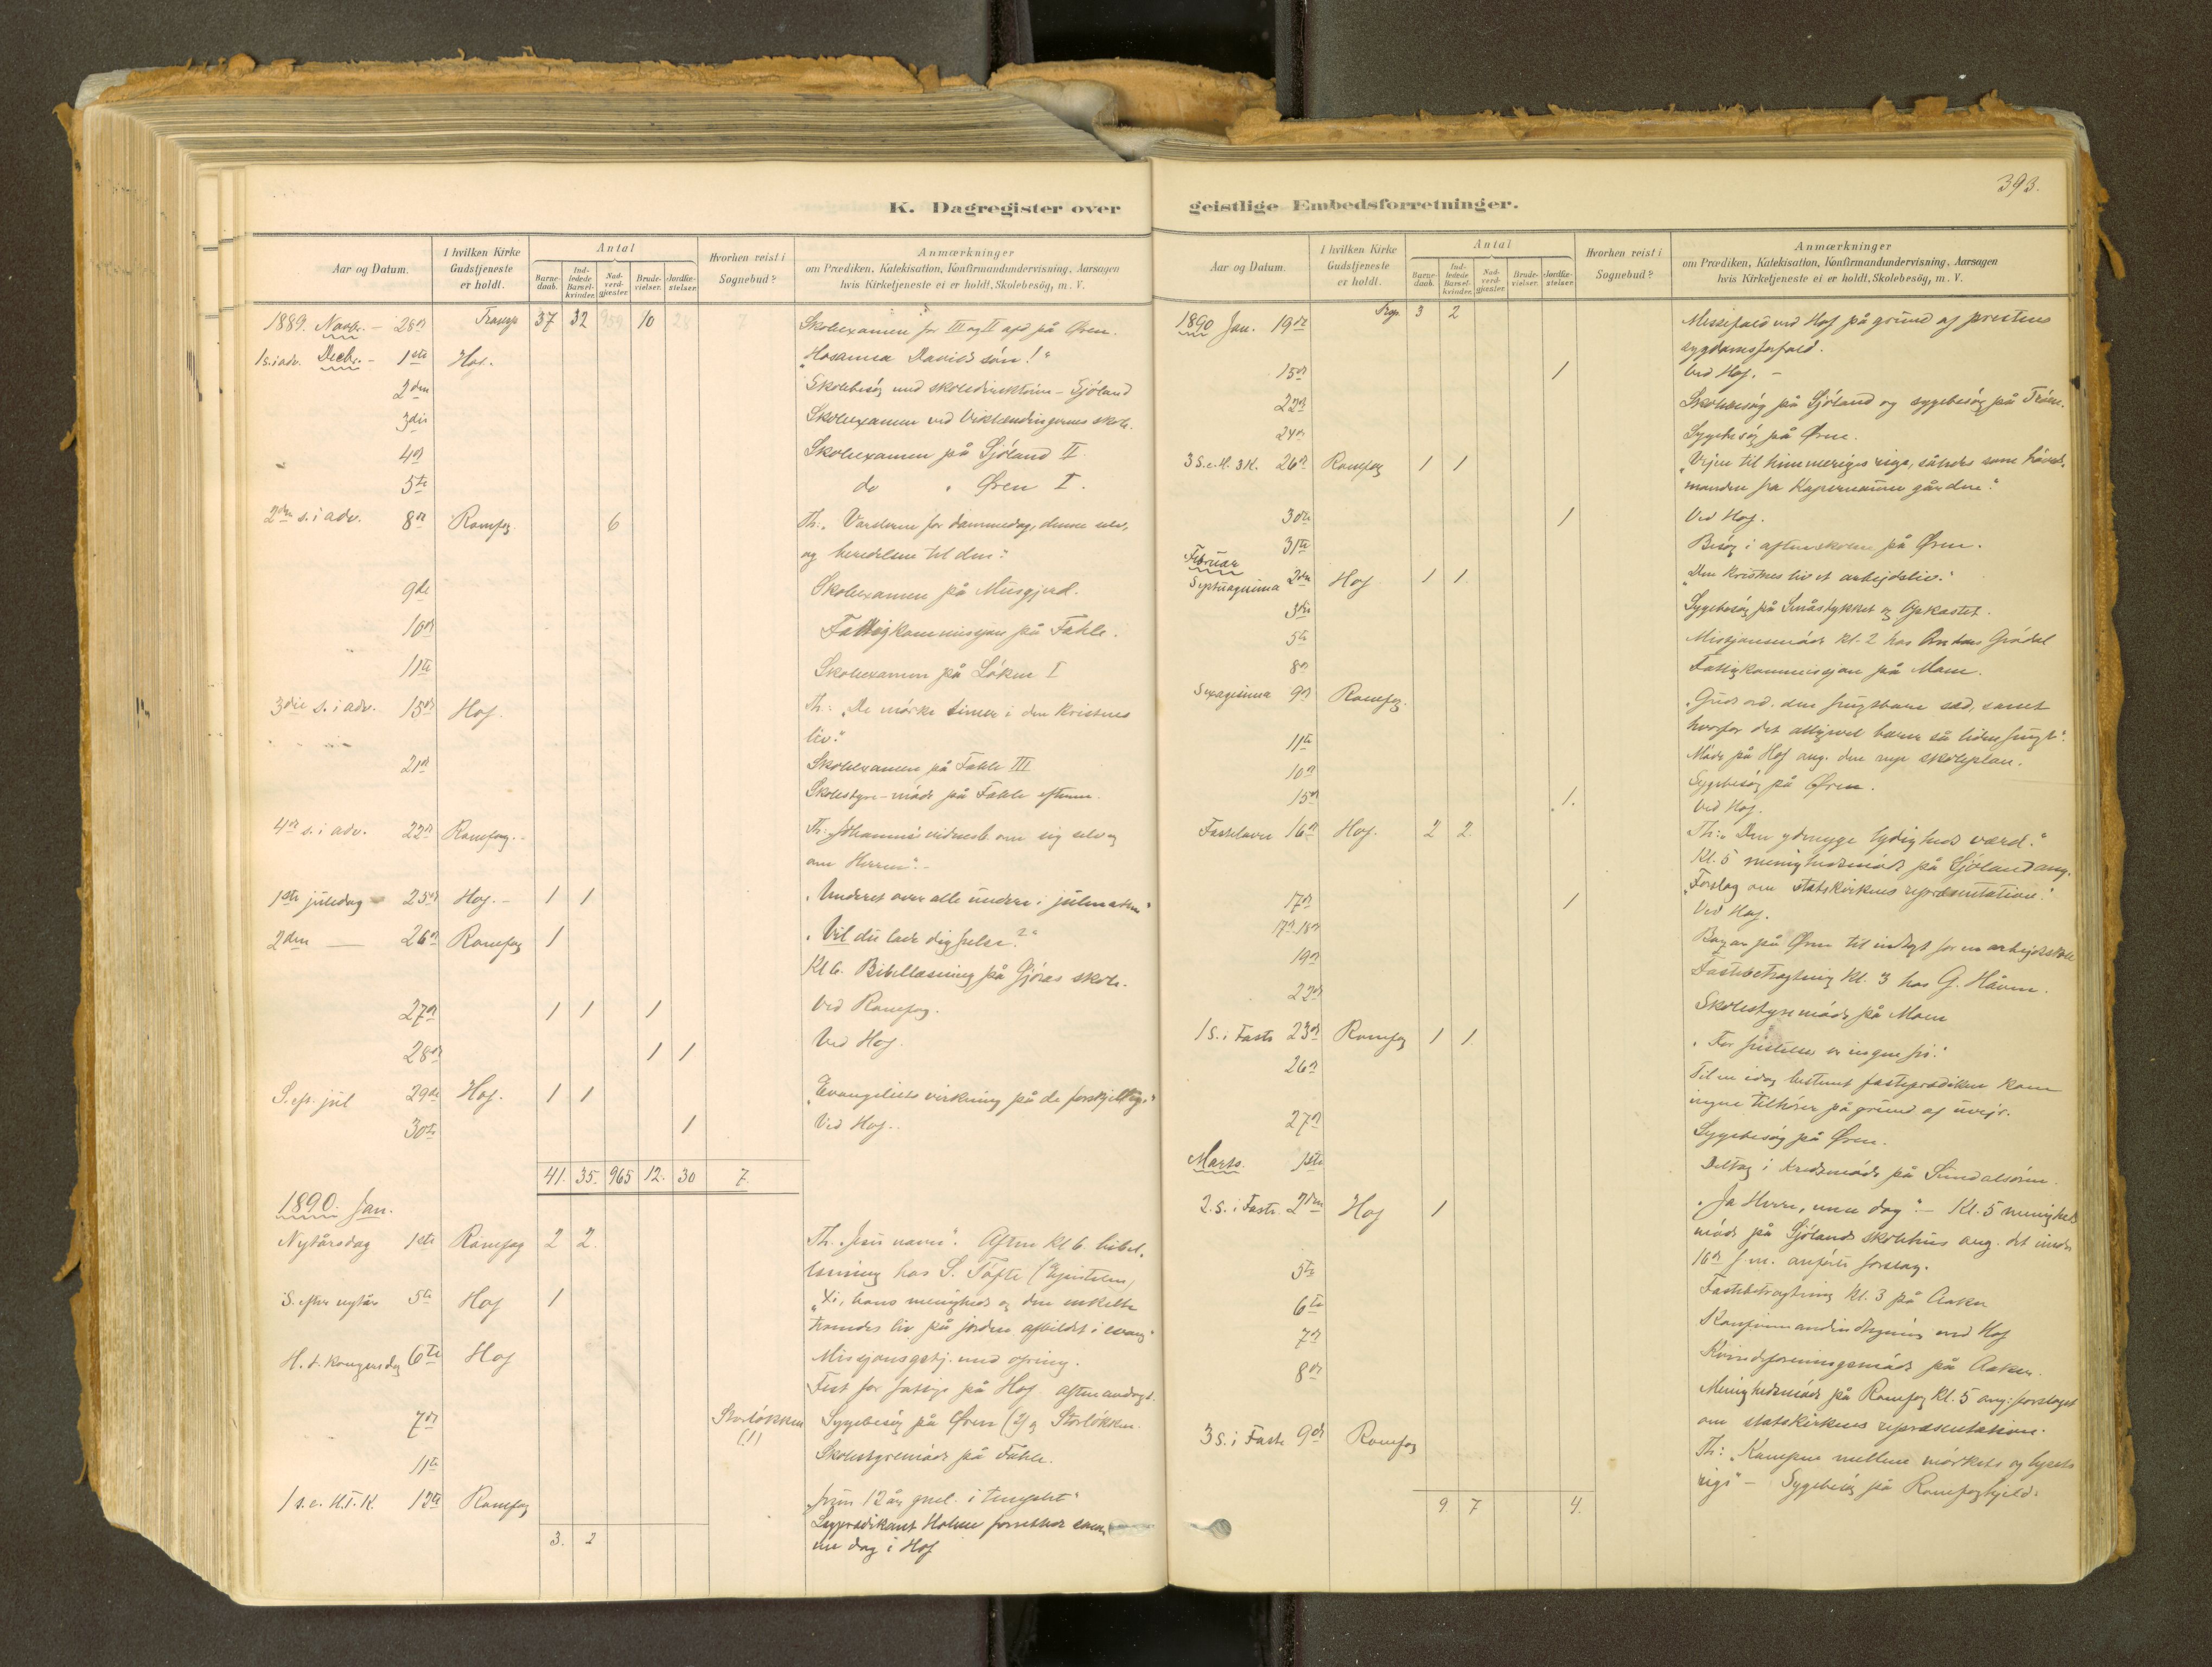 K. Dagregister over
Aar og Datum.
I hvilken Kirke Gudstjeneste er holdt.
Antal
Barnedaab.
Indledede Barselkvinder.
Nadverdgjæster.
Brudevielser.
Jordfæstelser.
Hvorhen reist i Sognebud?
Anmærkninger
om Prædiken, Katekisation, Konfirmandundervisning, Aarsagen
hvis Kirketjeneste ei er holdt, Skolebesög, m. V.
1889. Novbr. - 28de Transp 37 32 959 10 28 7 Skolexamen for III og II afd på Øren.
1 s. i adv. Decbr. - 1ste Hof. "Hosanna Davids sön!"
2den Skolebesög med skoledirektören - Sjöland
3die Skolexamen ved skole.
4de Skolexamen på Sjöland II
5te do " Øren I.
2den s. i adv. 8de Romfog. 6 Th: "Varslerne for dommedag, denne selv,
og beredelsen til den."
9de Skolexamen på Musgjerd.
10de Fattigkommissjon på Fahle.
11te Skolexamen på Löken I
3die s. i adv. 15de Hof. Th: "De mörke timer i den kristnes
liv."
21de Skolexamen på Fahle III
Skolestyre-möde på Fahle efterm.
4de s. i adv. 22de Romfog. - Th: Johannes's vidnesb. om sig selv og
om Herren". -
1ste juledag 25de Hof. - 1 1 "Underet over alle undere i julenatten"
2den — 26de Romfog 1 "Vil du lade dig frelse?"
Kl 6. Bibellæsning på Gjöras skole.
27de 1 1 1 Ved Romfog.
28de 1 1 Ved Hof.
S. ef. jul 29de Hof. 1 1 "Evangeliets virkning på de forskjellige"
30te 1 Ved Hof.
41. 35. 965 12. 30 7.
1890. Jan.
Nytårsdag 1ste Romfog 2 2. Th. "Jesu navn". Aften kl 6. bibel-
læsning hos S. Tofte (Epistelen)
S. efter nytår 5te Hof 1 "Xi, hans menigheds og den enkelte
troendes liv på jorden afbildet i evang"
H. 3 kongersdg 6te Hof Missjonsgstj. med ofring.
Fest for fattige på Hof. aftenandagt.
7de Storlökken (1) Sygebesög på Øren (2) og Storlökken.
11te Skolestyremöde på Fahle.
1 s. e. H.T.K. 12te Romfog "Jesus 12 år gml. i templet"
Lægprædikant Holme forrettede samme
dag i Hof
3. 2
393.
geistlige Embedsforretninger.
Aar og Datum.
I hvilken Kirke Gudstjeneste er holdt.
Antal
Barnedaab.
Indledede Barselkvinder.
Nadverdgjæster.
Brudevielser.
Jordfæstelser.
Hvorhen reist i Sognebud?
Anmærkninger
om Prædiken, Katekisation, Konfirmandundervisning, Aarsagen
hvis Kirketjeneste ei er holdt, Skolebesög, m. V.
1890 Jan. 19de Trsp. 3 2 Messefald ved Hof på grund af prestens
sygdomsforfald.
15de 1 Ved Hof. -
22de Skolebesög på Sjöland og sygebesög på
24de Sygebesög på Øren.
3 S. e. H. 3 K. 26de Romfog 1 1 "Vejen til himmeriges rige, således som höveds-
manden fra Kapernaum går den."
30te 1 Ved Hof.
31te Besög i aftenskolen på Øren.
Februar
Septuagesima 2den Hof 1 1 "Den kristnes liv et arbejdsliv."
3die Sygebesög på Småstykket og Opkastet.
5te Missjonsmöde kl. 2 hos Anders Grödal
8de Fattigkommissjon på Moen.
Sexagesima 9de Romfog. "Guds ord, den frugtbare sæd, samt
hvorfor det alligevel bærer så liden frugt".
11te Möde på Hof ang. den nye skoleplan.
10de Sygebesög på Øren.
15de 1. Ved Hof.
Fastelavn 16de Hof. 2 2. Th: "Den ydmyge lydigheds værd."
Kl. 5 menighedsmöde på Sjöland ang.
"Forslag om statskirkens repræsentation."
17de 1 Ved Hof.
17de 18de Bazar på Øren til indtægt for en arbejdsskole
19de Fastebetragtning kl. 3 hos G. Håven.
22de Skolestyremöde på Moen
1 S. i Faste 23de Romfog 1 1. "For fristelse er ingen fri."
26de Til en idag bestemt fasteprædiken kom
ingen tilhörer på grund af uvejr.
27de Sygebesög på Øren.
Marts. 1ste Deltog i kredsmöde på Sundalsören.
2. S. i Faste. 2den Hof 1 "Ja Herre, men dog". - Kl. 5 menigheds
möde på Sjölands skolehus ang. det under
16de f. m. anförte forslag.
5te Fastebetragtning kl. 3 på Aaken
6te Konfirmandindtegning ved Hof
7de Kvindeforeningsmöde på Aaken.
8de Menighedsmöde på Romfog kl. 5 ang: forslaget
om statskirkens repræsentation.
3 S. i Faste 9de Romfog Th: "Kampen mellem mörkets og lysets
rige" - Sygebesög på Romfoghjeld.
9 7 4.